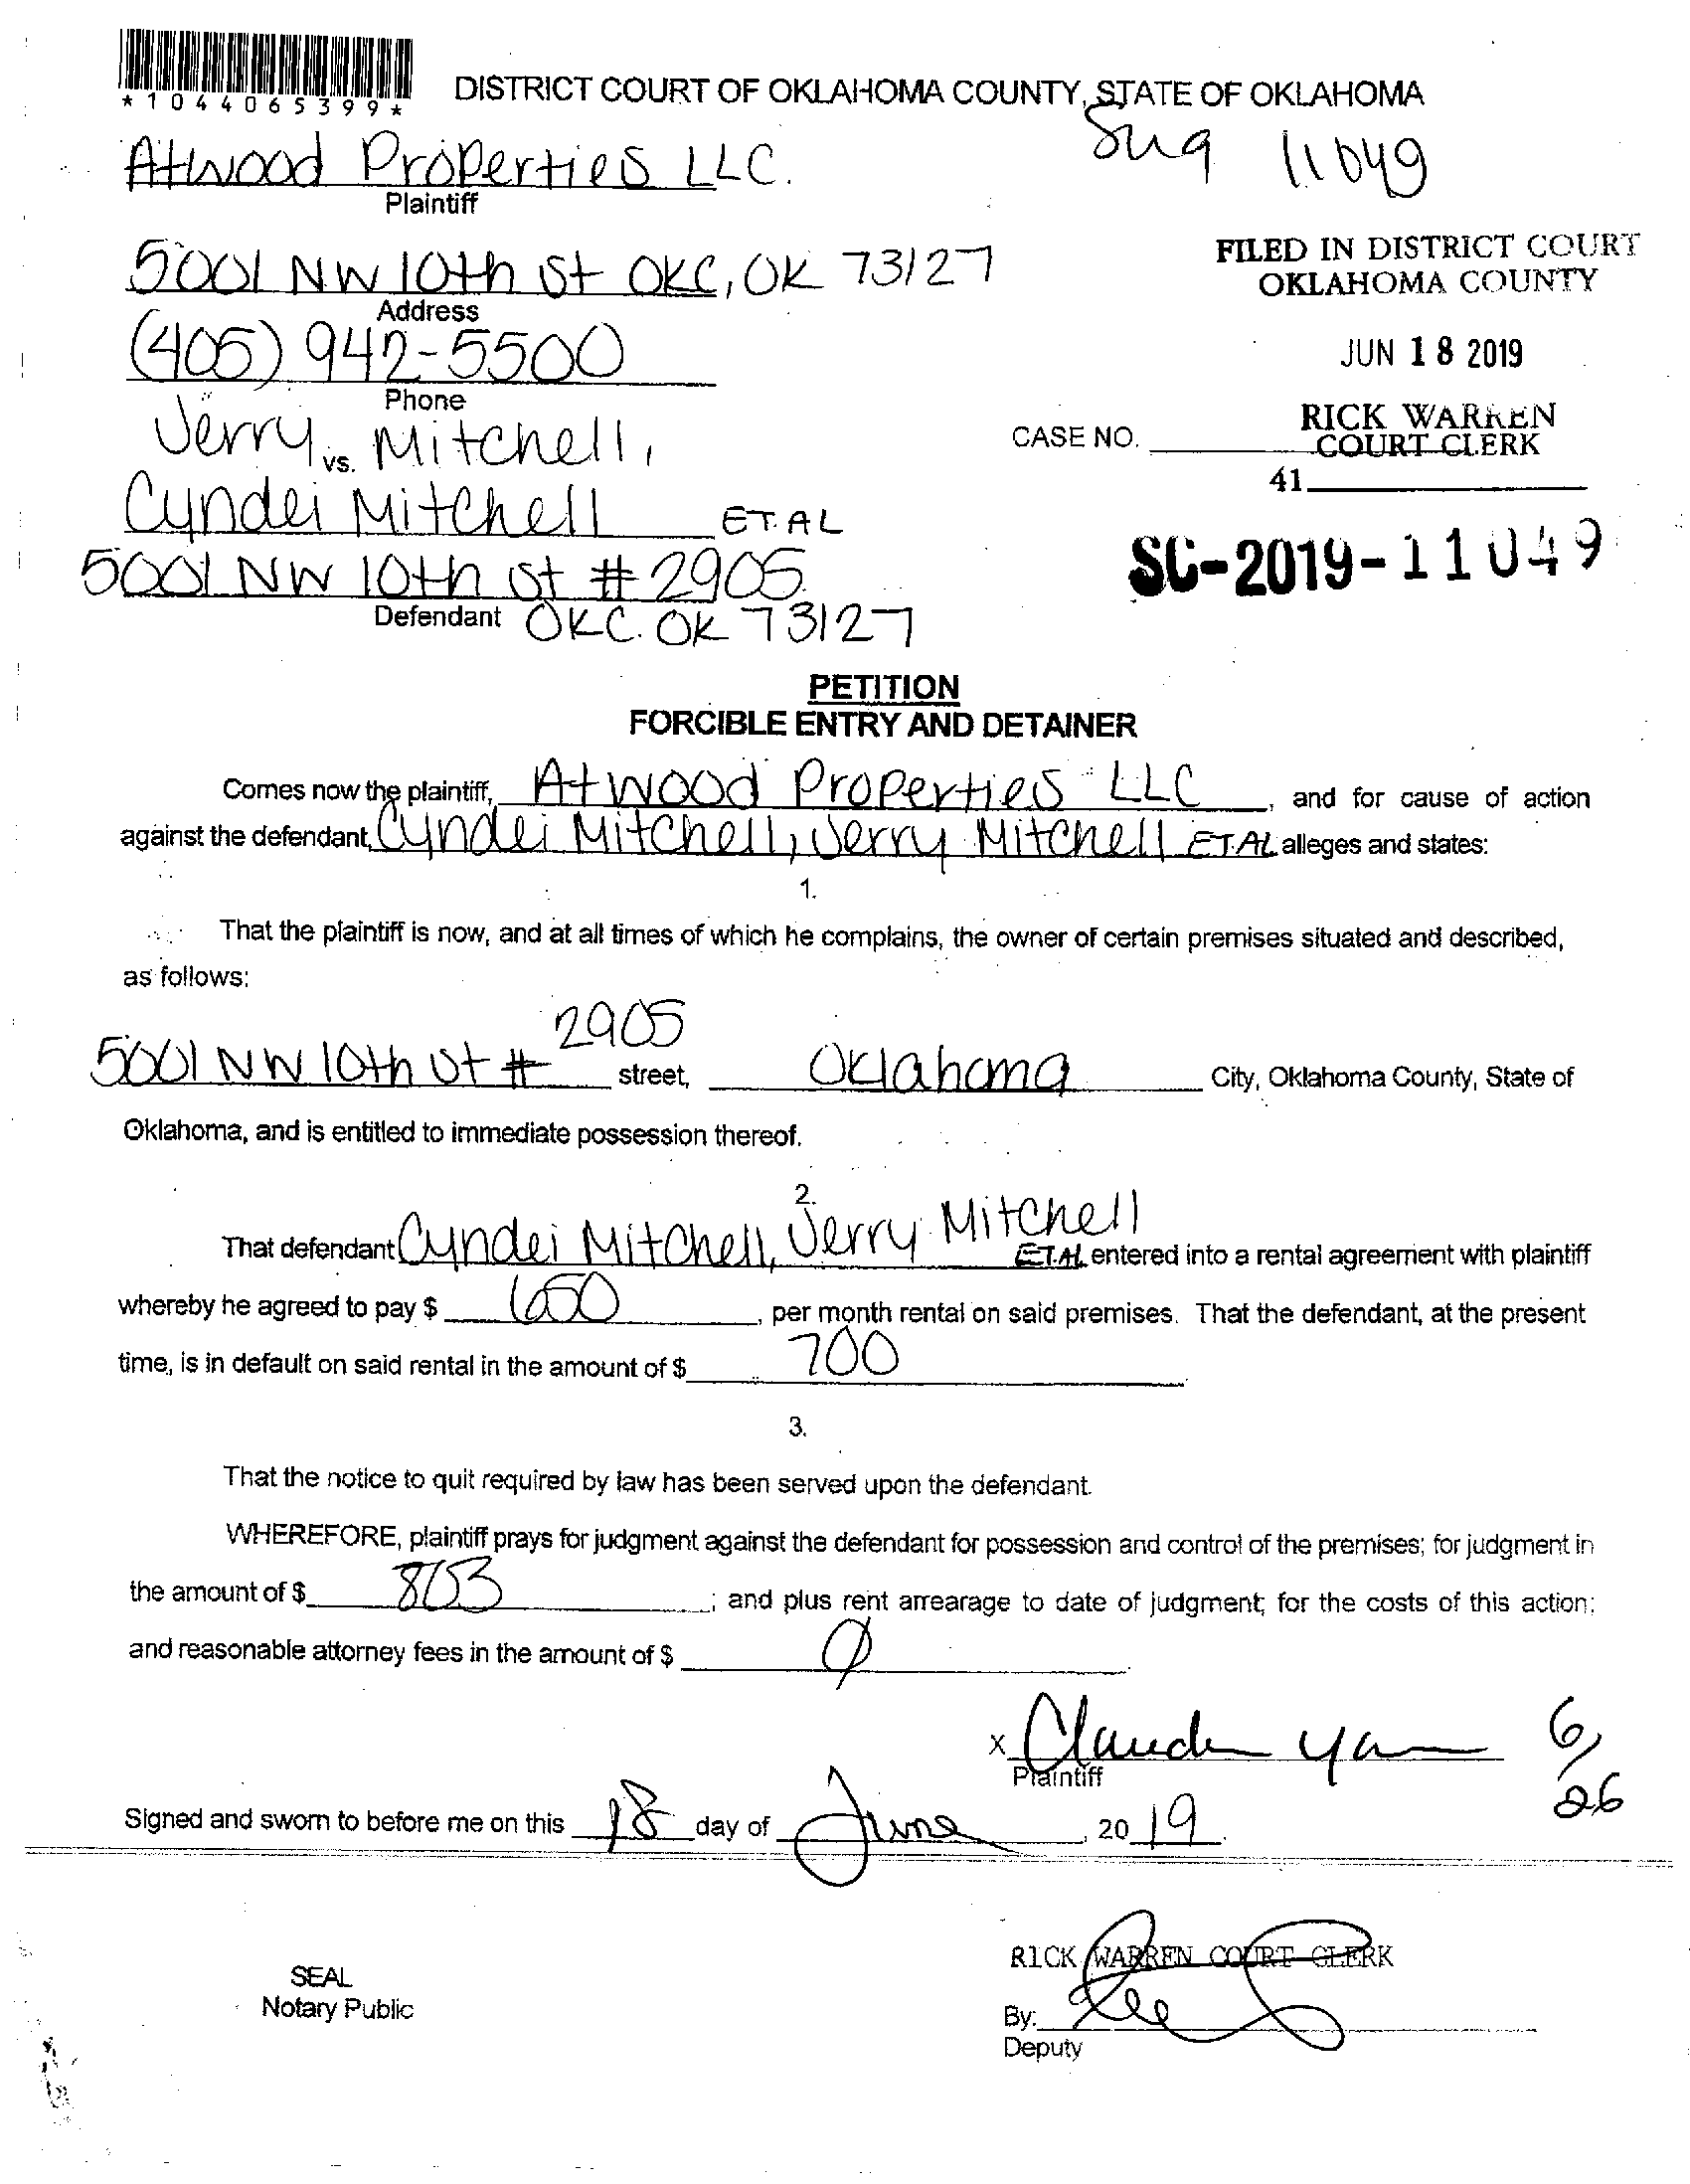 *1044065399*
DISTRICT COURT OF OKLAHOMA COUNTY, STATE OF OKLAHOMA
11049
Atwood Properties LLC.
Plaintiff
5001 NW 10th St OKC, OK 73127
Address
FILED IN DISTRICT COURT
OKLAHOMA COUNTY
(405) 942-5500
Phone
JUN 18 2019
Jerry Mitchell,
vs.
RICK WARREN
COURT CLERK
CASE NO.
41
Cyndei Mitchell ET. AL
5001 NW 10th St # 2905
Defendant OKC. OK 73127
SC-2019-11049
PETITION
FORCIBLE ENTRY AND DETAINER
Comes now the plaintiff, Atwood Properties LLC, and for cause of action
against the defendant, Cyndei Mitchell, Jerry Mitchell ET.AL alleges and states:
1.
That the plaintiff is now, and at all times of which he complains, the owner of certain premises situated and described,
as follows:
5001 NW 10th St # 2905 street, Oklahoma City, Oklahoma County, State of
Oklahoma, and is entitled to immediate possession thereof.
2.
That defendant Cyndei Mitchell, Jerry Mitchell ET.AL entered into a rental agreement with plaintiff
whereby he agreed to pay $ 650, per month rental on said premises. That the defendant, at the present
time, is in default on said rental in the amount of $ 700
3.
That the notice to quit required by law has been served upon the defendant.
WHEREFORE, plaintiff prays for judgment against the defendant for possession and control of the premises; for judgment in
the amount of $ ; and plus rent arrearage to date of judgment; for the costs of this action;
and reasonable attorney fees in the amount of $ 0
X
Plaintiff
6/26
Signed and sworn to before me on this 18 day of June, 2019
SEAL
Notary Public
RICK WARREN COURT CLERK
By:
Deputy